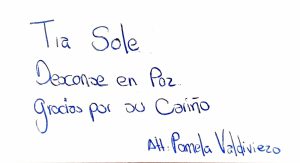 Tia Sole
Desconse en Paz
gracias por su Cariño
Att: Pamela Valdiviezo